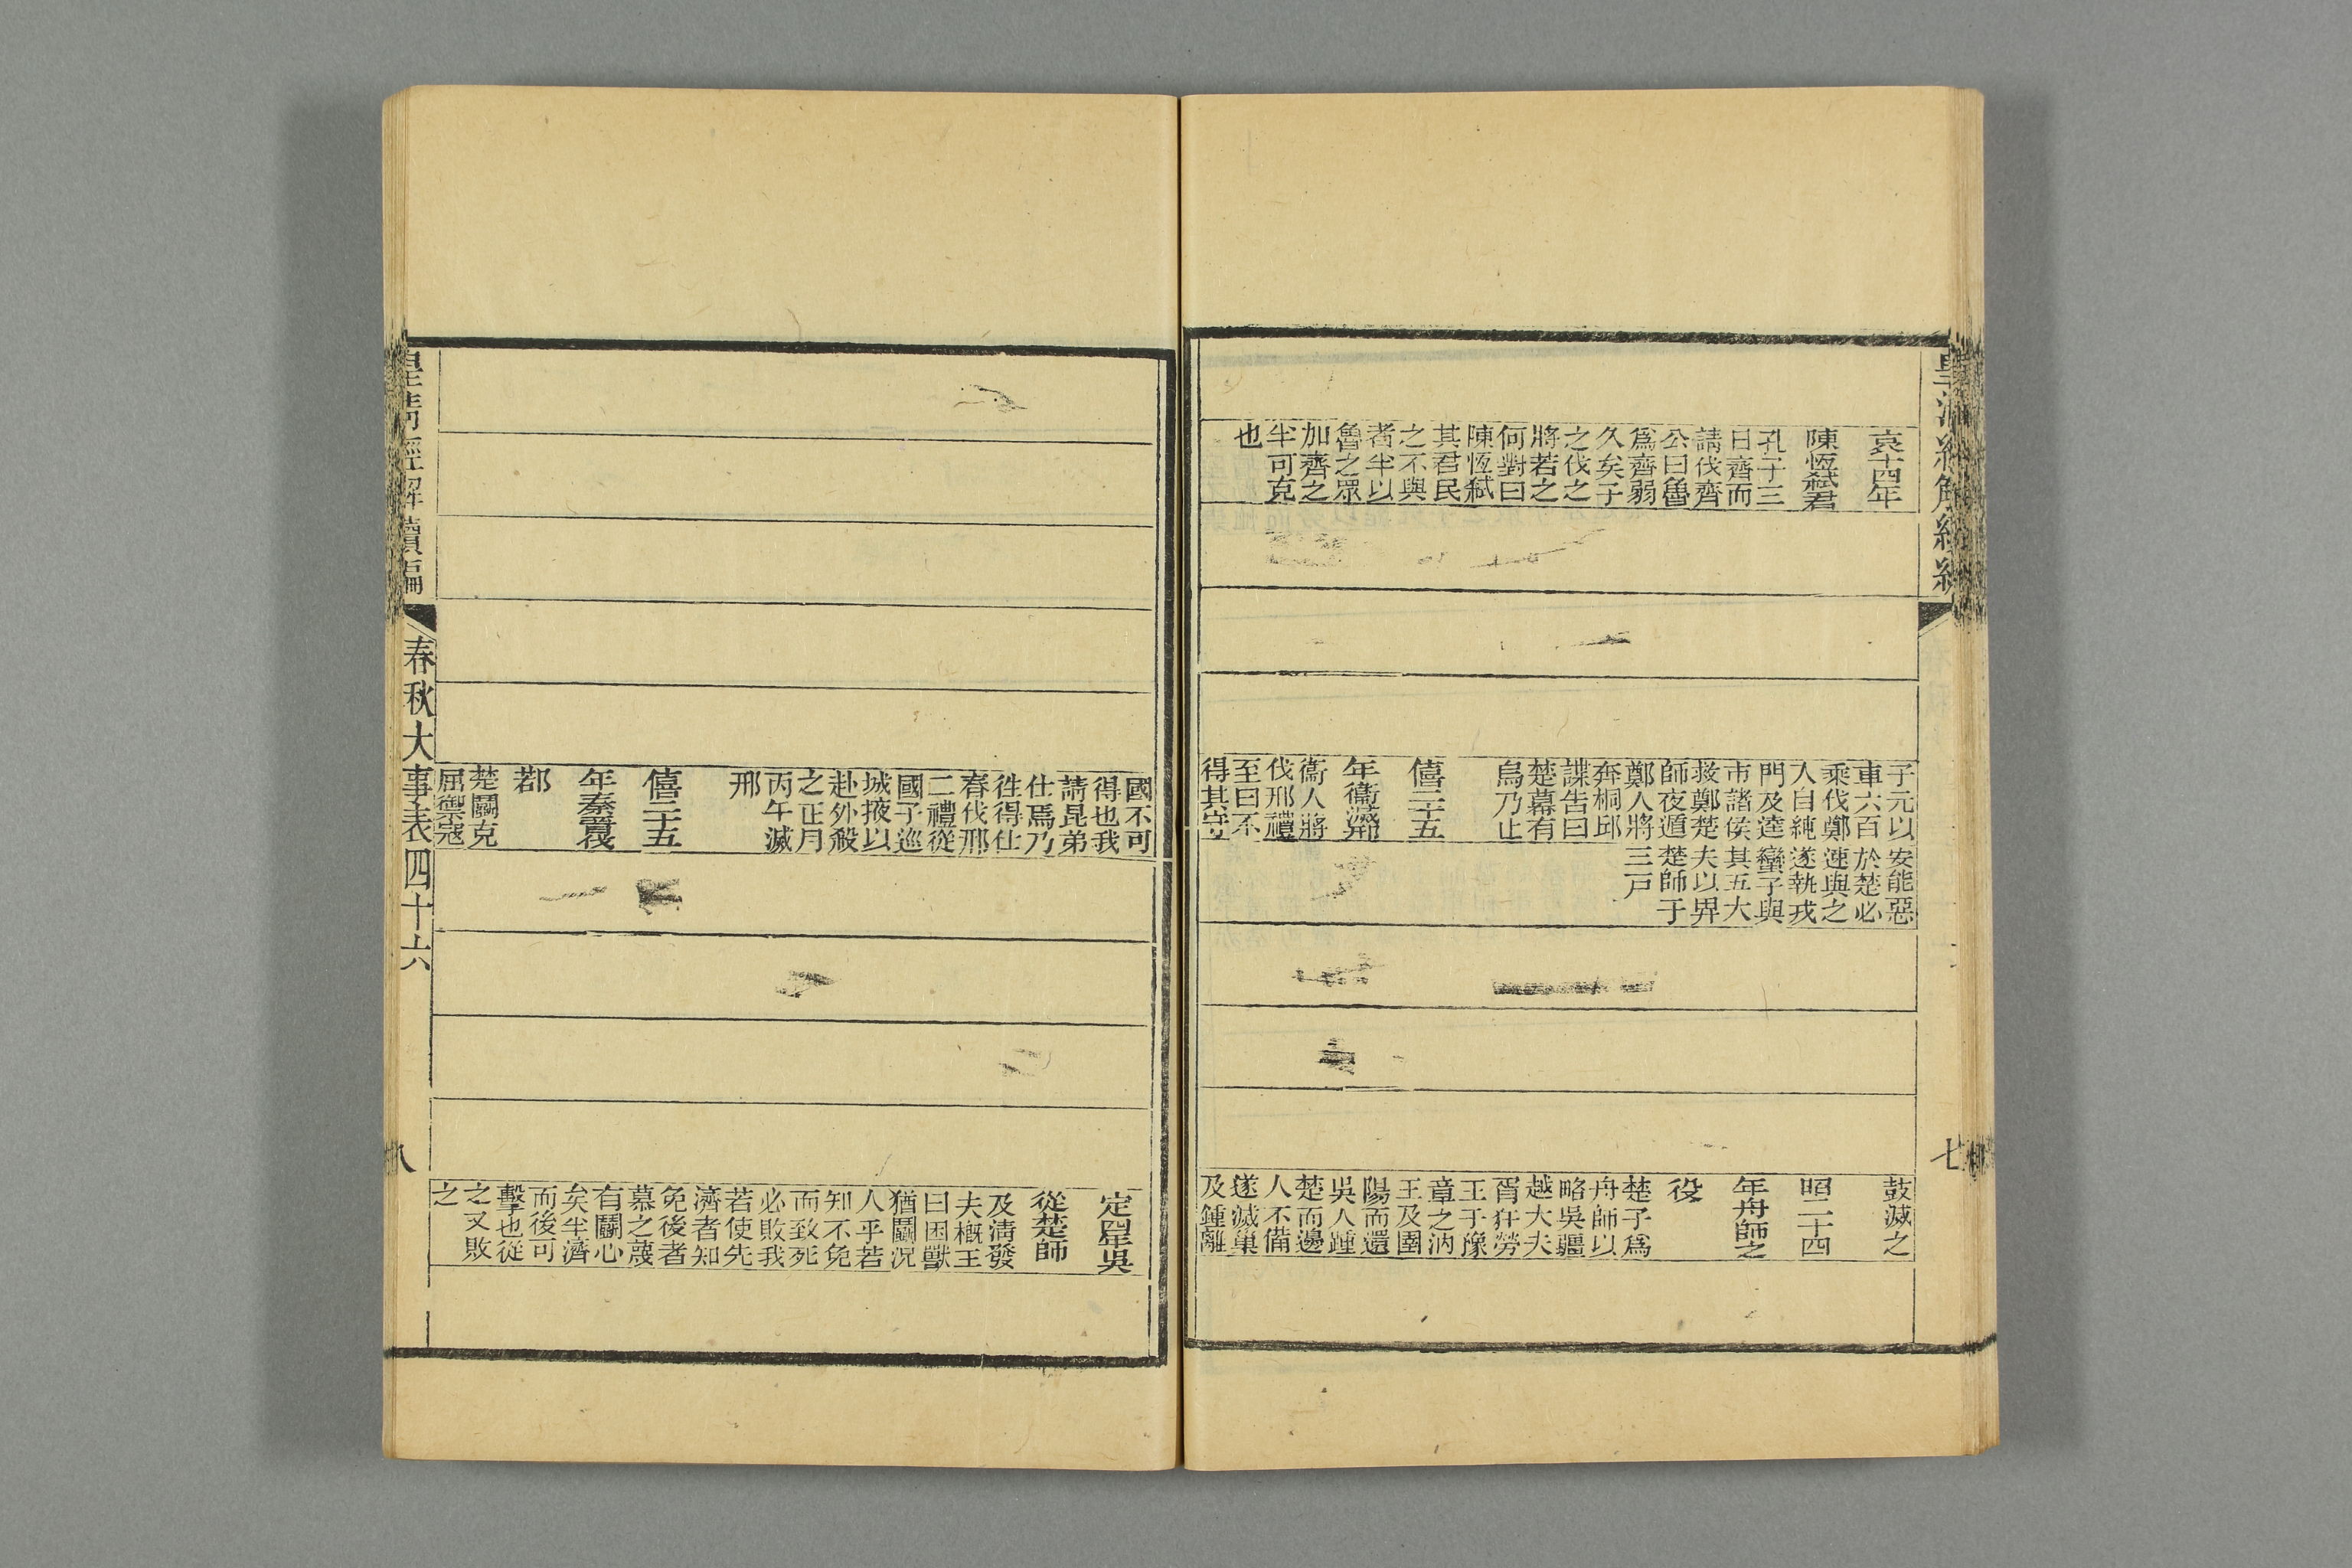 哀十四年
陳恆弑君
孔子三
日齊而
請伐齊
公曰魯
爲齊弱
久矣子
之伐之
將若之
何對曰
陳恆弑
其君民
之不與
者半以
魯之眾
加齊之
半可克
也
子元以
車六百
乘伐鄭
入自純
門及逵
市諸侯
救鄭楚
師夜遁
鄭人將
奔桐邱
諜告曰
楚幕有
烏乃止
僖二十五
年衞滅邢
衞人將
伐邢禮
至曰不
得其守
安能惡
於楚必
速與之
遂執戎
蠻子與
其五大
夫以畀
楚師于
三戸
鼓滅之
昭二十四
年舟師之
役
楚子爲
舟師以
略吳疆
越大夫
胥犴勞
王于豫
章之汭
王及圉
陽而還
吳人踵
楚而邊
人不備
遂滅巢
及鍾離
七
國不可
得也我
請昆弟
仕焉乃
徃得仕
春伐邢
二禮從
國子巡
城掖以
赴外殺
之正月
丙午滅
邢
僖二十五
年秦襲
鄀
楚鬬克
屈禦寇
定四年吳
從楚師
及淸發
夫槪王
曰困獸
猶鬬況
人乎若
知不免
而致死
必敗我
若使先
濟者知
免後者
慕之蔑
有鬬心
矣半濟
而後可
擊也從
之又敗
之
皇淸經解續編
春秋大事表四十六
八